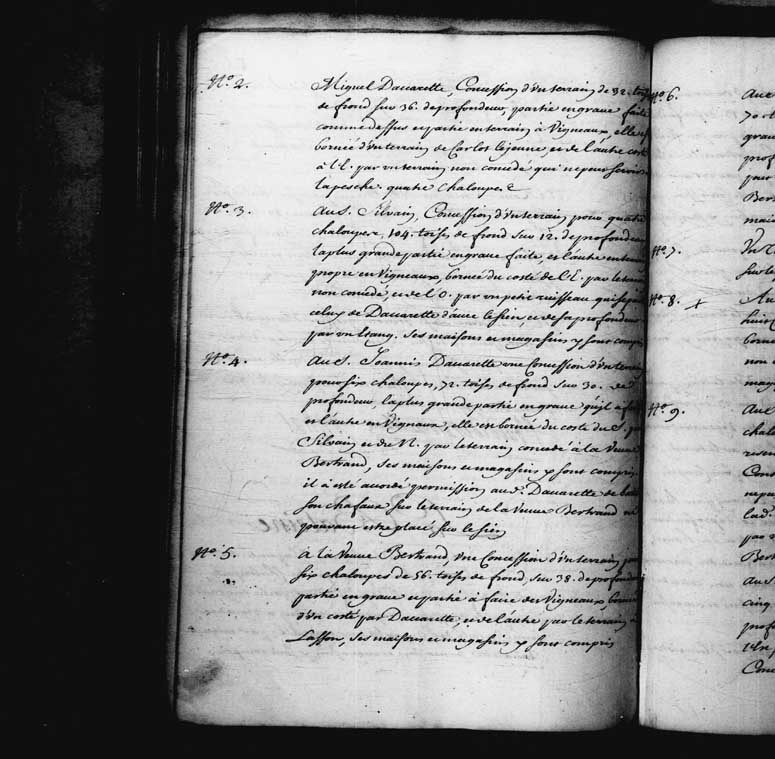 N.º 2. Miguel Daccarette, Concession d'un terrain de 32. toi
de frond sur 36. de profondeur, partie en grave faite
comme dessus et partie en terrain à Vigneaux, elle e
bornée d'un terrain de Carlos le jeune, et de l'autre costé
à l'E. par un terrain non concedé qui ne peut servir
la pesche quatre chaloupes &
N.º 3. Au S. Silvain, Concession d'un terrain pour quatre
chaloupes, 104. toises de frond sur 12. de profondeur
la plus grande partie en grave faite, et l'autre en terrain
propre en Vigneaux, bornée du costé de l'E. par le terrain
non concedé, et de l'O. par un petit ruisseau qui sépare
celuy de Daccarette d'avec le sien, et de sa profondeur
par un Etang. Ses maisons et magasins y sont compris
N.º 4. Au S. Joannis Daccarette une Concession d'un terrain
pour six chaloupes, 72. toises de frond sur 30. de
profondeur, la plus grande partie en grave qu'il a fait
et l'autre en Vignaux, elle est bornée du costé du S. par
Silvain et du N. par le terrain concedé à la Veuve
Bertrand, Ses maisons et magasins y sont compris
il a esté accordé permission au d. Daccarette de
son chafaux sur le terrain de la Veuve Bertrand ne
pouvant estre placé sur le sien
N.º 5. à la Veuve Bertrand, Une Concession d'un terrain pour
six chaloupes de 56. toises de frond, sur 38. de profondeur
partie en grave et partie à faire des Vigneaux bornée
d'un costé par Daccarette, et de l'autre par le terrain
Lasson, Ses maisons et magasins y sont compris
N.º 6. Aux
70 t
grau
prof
pour
Bert
mai
N.º 7. Un t
sur la
N.º 8. + Au
huit
borné
non
mag
N.º 9. Au S
chal
reser
Conc
ne pu
lad.
par
Bert
Au S
cinq
prof
Conc